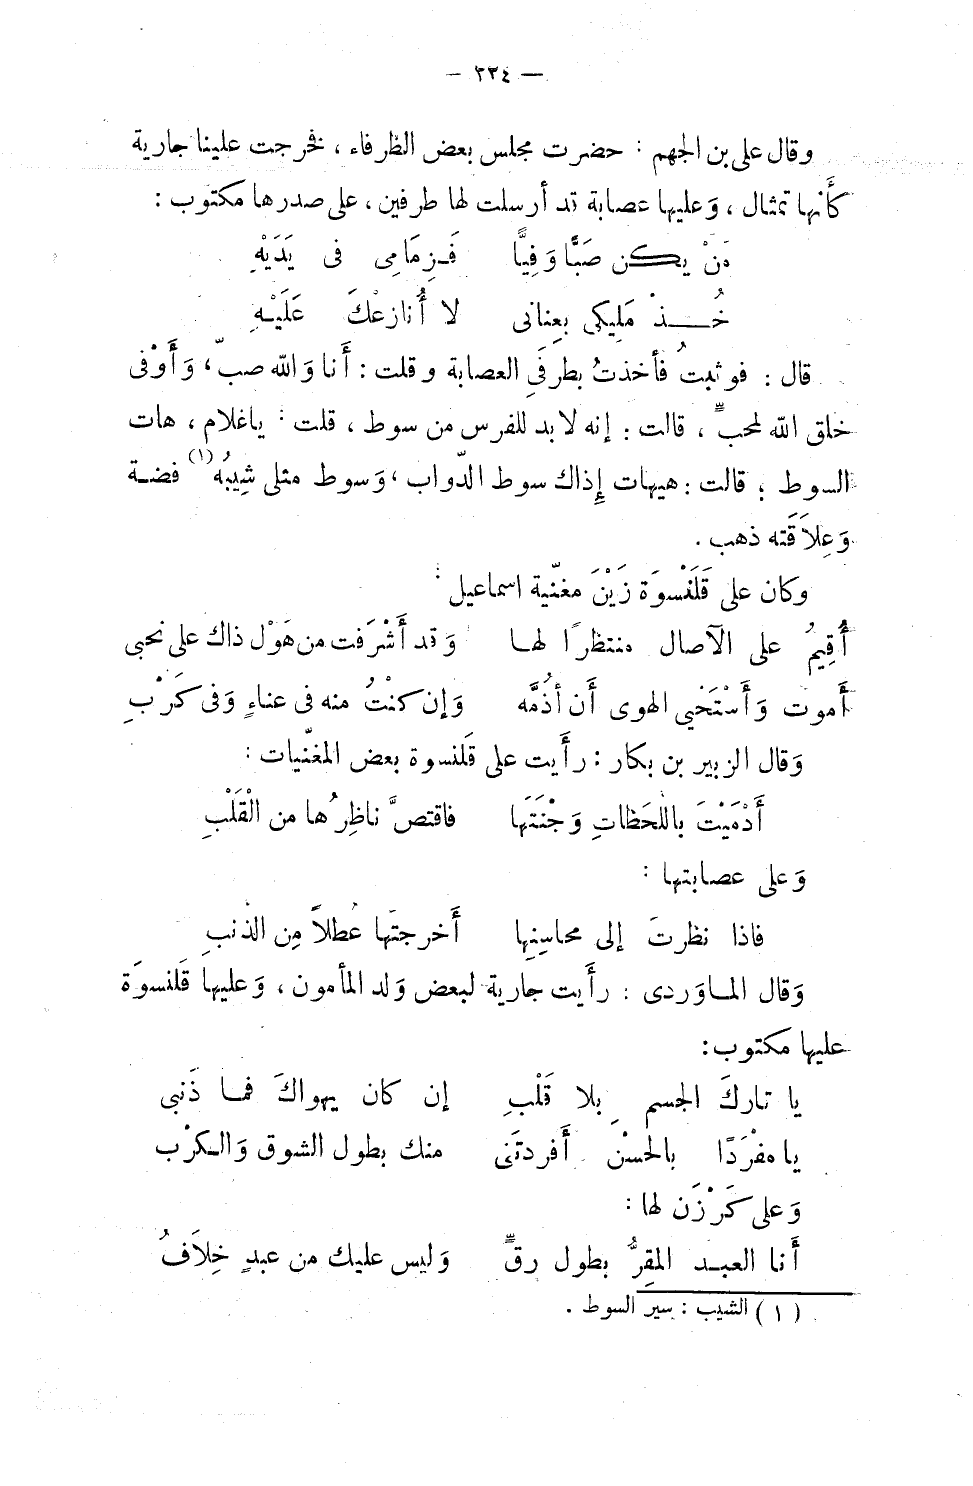 — ٢٣٤ —
وقال على بن الجهم : حضرت مجلس بعض الظرفاء ، فخرجت علينا جارية
كأَنها تمثال ، وَعليها عصابة قد أرسلت لها طرفين ، على صدرها مكتوب :
مَنْ يكن صَبًّا وَفِيًّا فَـزِمَامِى فى يَدَيْهِ
خُـــذْ مَلِيكى بِعنانى لا أُنازعْكَ عَلَيْهِ
قال : فوثبتُ فأخذتُ بطرفَىِ العصابة وقلت : أَنا وَالله صبٌّ ، وَأَوْفى
خلق الله لمحبٍّ ، قالت : إنه لابد للفرس من سوط ، قلت : ياغلام ، هات
السوط ; قالت : هيهات إِذاك سوط الدّواب ، وَسوط مثلى شِيبُهُ (١) فضـة
وَعِلاَقَته ذهب .
وكان على قَلَنْسوَة زَيْنَ مغنّية اسماعيل :
أُقِيمُ على الآصال منتظرًا لهـا وَقد أَشْرَفت من هَوْل ذاك على نحبى
أَموت وَأَسْتَحْيِي الهوى أَن أذُمَّه وَإن كنْتُ منه فى عناءٍ وَفى كَرْبِ
وَقال الزبير بن بكار : رأَيت على قَلنسوة بعض المغنّيات :
أَدْمَيْتَ باللحَظاتِ وَجْنَتَها فاقتصَّ ناظِرُها من الْقَلْبِ
وَعلى عصابتها :
فاذا نظرتَ إلى محاسِنِها أَخرجتَها عُطلاً مِن الذنبِ
وَقال المـاوَردى : رأَيت جارية لبعض وَلد المأمون ، وَعليها قَلنسوَة
عليها مكتوب :
يا تاركَ الجسم ِ بلا قَلْبِ إن كان يهواكَ فمـا ذَنبى
يا مفْرَدًا بالحسْن أَفردتَنى منك بطول الشوق وَالـكرْب
وَعلى كَرْزَن لها :
أَنا العبـد المقِرُّ بطول رقٍّ وَليس عليك من عبدٍ خِلاَفُ
(١) الشيب : سير السوط .